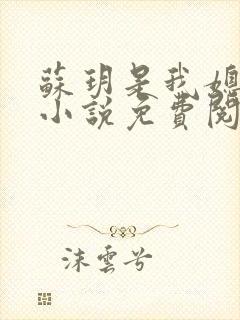 蘇玥是我媳
小說免費閱
沫雲兮